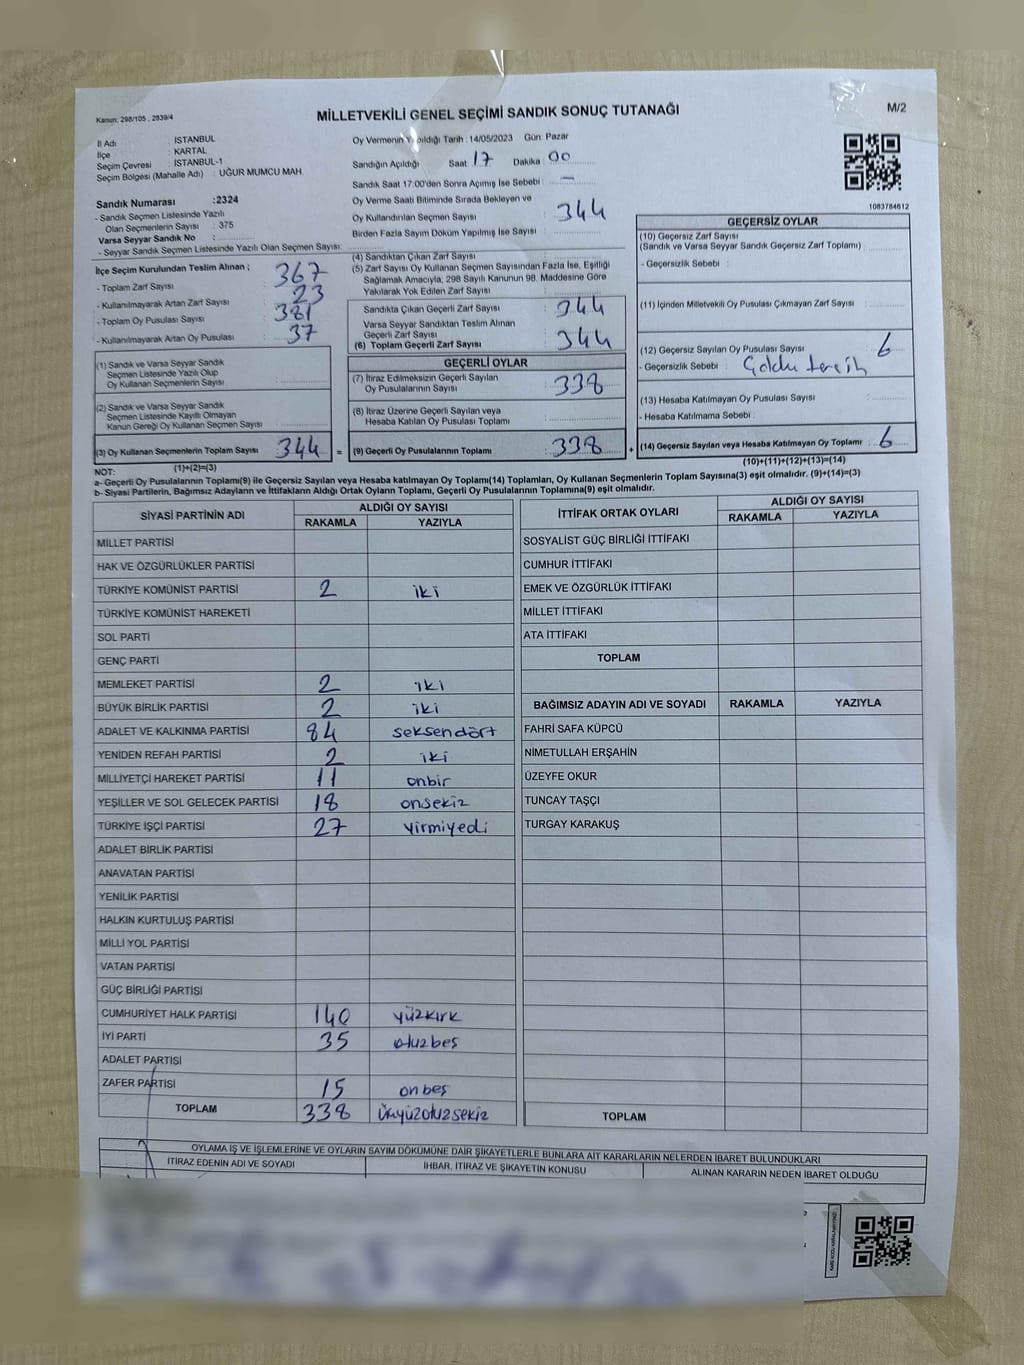 Kanun; 298/105 , 2839/4
MİLLETVEKİLİ GENEL SEÇİMİ SANDIK SONUÇ TUTANAĞI
M/2
İl Adı : İSTANBUL
İlçe : KARTAL
Seçim Çevresi : İSTANBUL-1
Seçim Bölgesi (Mahalle Adı) : UĞUR MUMCU MAH.
Sandık Numarası :2324
- Sandık Seçmen Listesinde Yazılı
Olan Seçmenlerin Sayısı : 375
Varsa Seyyar Sandık No :
- Seyyar Sandık Seçmen Listesinde Yazılı Olan Seçmen Sayısı:
Oy Vermenin Yapıldığı Tarih : 14/05/2023 Gün: Pazar
Sandığın Açıldığı Saat 17 Dakika 00
Sandık Saat 17:00'den Sonra Açımış İse Sebebi : —
Oy Verme Saati Bitiminde Sırada Bekleyen ve
Oy Kullandırılan Seçmen Sayısı : 344
Birden Fazla Sayım Döküm Yapılmış İse Sayısı :
1083784612
İlçe Seçim Kurulundan Teslim Alınan ;
- Toplam Zarf Sayısı : 367
- Kullanılmayarak Artan Zarf Sayısı : 23
- Toplam Oy Pusulası Sayısı : 381
- Kullanılmayarak Artan Oy Pusulası : 37
(1) Sandık ve Varsa Seyyar Sandık
Seçmen Listesinde Yazılı Olup
Oy Kullanan Seçmenlerin Sayısı :
(2) Sandık ve Varsa Seyyar Sandık
Seçmen Listesinde Kayıtlı Olmayan
Kanun Gereği Oy Kullanan Seçmen Sayısı :
(3) Oy Kullanan Seçmenlerin Toplam Sayısı : 344 =
(1)+(2)=(3)
(4) Sandıktan Çıkan Zarf Sayısı :
(5) Zarf Sayısı Oy Kullanan Seçmen Sayısından Fazla İse, Eşitliği
Sağlamak Amacıyla; 298 Sayılı Kanunun 98. Maddesine Göre
Yakılarak Yok Edilen Zarf Sayısı :
Sandıkta Çıkan Geçerli Zarf Sayısı : 344
Varsa Seyyar Sandıktan Teslim Alınan
Geçerli Zarf Sayısı :
(6) Toplam Geçerli Zarf Sayısı : 344
GEÇERLİ OYLAR
(7) İtiraz Edilmeksizin Geçerli Sayılan
Oy Pusulalarının Sayısı : 338
(8) İtiraz Üzerine Geçerli Sayılan veya
Hesaba Katılan Oy Pusulaları Toplamı :
(9) Geçerli Oy Pusulalarının Toplamı : 338 +
GEÇERSİZ OYLAR
(10) Geçersiz Zarf Sayısı
(Sandık ve Varsa Seyyar Sandık Geçersiz Zarf Toplamı) :
- Geçersizlik Sebebi :
(11) İçinden Milletvekili Oy Pusulası Çıkmayan Zarf Sayısı :
(12) Geçersiz Sayılan Oy Pusulası Sayısı : 6
- Geçersizlik Sebebi : Çoklu tercih
(13) Hesaba Katılmayan Oy Pusulası Sayısı :
- Hesaba Katılmama Sebebi :
(14) Geçersiz Sayılan veya Hesaba Katılmayan Oy Toplamı : 6
(10)+(11)+(12)+(13)=(14)
NOT:
a- Geçerli Oy Pusulalarının Toplamı(9) ile Geçersiz Sayılan veya Hesaba katılmayan Oy Toplamı(14) Toplamları, Oy Kullanan Seçmenlerin Toplam Sayısına(3) eşit olmalıdır. (9)+(14)=(3)
b- Siyasi Partilerin, Bağımsız Adayların ve İttifakların Aldığı Ortak Oyların Toplamı, Geçerli Oy Pusulalarının Toplamına(9) eşit olmalıdır.
SİYASİ PARTİNİN ADI ALDIĞI OY SAYISI
RAKAMLA YAZIYLA
MİLLET PARTİSİ
HAK VE ÖZGÜRLÜKLER PARTİSİ
TÜRKİYE KOMÜNİST PARTİSİ 2 iki
TÜRKİYE KOMÜNİST HAREKETİ
SOL PARTİ
GENÇ PARTİ
MEMLEKET PARTİSİ 2 iki
BÜYÜK BİRLİK PARTİSİ 2 iki
ADALET VE KALKINMA PARTİSİ 84 seksendört
YENİDEN REFAH PARTİSİ 2 iki
MİLLİYETÇİ HAREKET PARTİSİ 11 onbir
YEŞİLLER VE SOL GELECEK PARTİSİ 18 onsekiz
TÜRKİYE İŞÇİ PARTİSİ 27 yirmiyedi
ADALET BİRLİK PARTİSİ
ANAVATAN PARTİSİ
YENİLİK PARTİSİ
HALKIN KURTULUŞ PARTİSİ
MİLLİ YOL PARTİSİ
VATAN PARTİSİ
GÜÇ BİRLİĞİ PARTİSİ
CUMHURİYET HALK PARTİSİ 140 yüzkırk
İYİ PARTİ 35 otuzbeş
ADALET PARTİSİ
ZAFER PARTİSİ 15 onbeş
TOPLAM 338 üçyüzotuzsekiz
İTTİFAK ORTAK OYLARI ALDIĞI OY SAYISI
RAKAMLA YAZIYLA
SOSYALİST GÜÇ BİRLİĞİ İTTİFAKI
CUMHUR İTTİFAKI
EMEK VE ÖZGÜRLÜK İTTİFAKI
MİLLET İTTİFAKI
ATA İTTİFAKI
TOPLAM
BAĞIMSIZ ADAYIN ADI VE SOYADI RAKAMLA YAZIYLA
FAHRİ SAFA KÜPCÜ
NİMETULLAH ERŞAHİN
ÜZEYFE OKUR
TUNCAY TAŞÇI
TURGAY KARAKUŞ
TOPLAM
OYLAMA İŞ VE İŞLEMLERİNE VE OYLARIN SAYIM DÖKÜMÜNE DAİR ŞİKAYETLERLE BUNLARA AİT KARARLARIN NELERDEN İBARET BULUNDUKLARI
İTİRAZ EDENİN ADI VE SOYADI İHBAR, İTİRAZ VE ŞİKAYETİN KONUSU ALINAN KARARIN NEDEN İBARET OLDUĞU